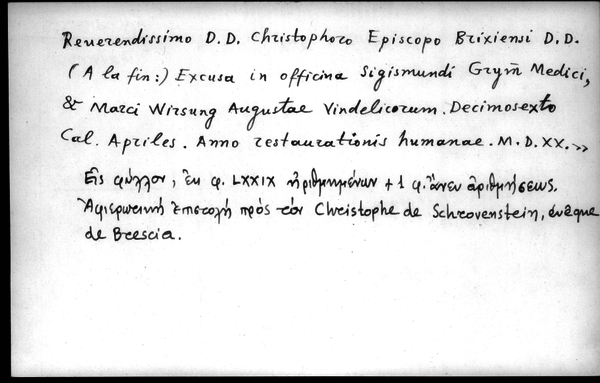 Reuerendissimo D.D. Christophoro Episcopo Brixiensi D.D.
(A la fin:) Excusa in officina Sigismundi Grym̃ Medici,
& Marci Wirsung Augustae Vindelicorum. Decimosexto
Cal. Apriles. Anno restaurationis humanae. M.D.XX.»
Εἰς φύλλον, ἐκ φ. LXXIX ἠριθμημένων + 1 φ. ἄνευ ἀριθμήσεως.
Ἀφιερωτικὴ ἐπιστολὴ πρὸς τὸν Christophe de Schrovenstein, évêque
de Brescia.